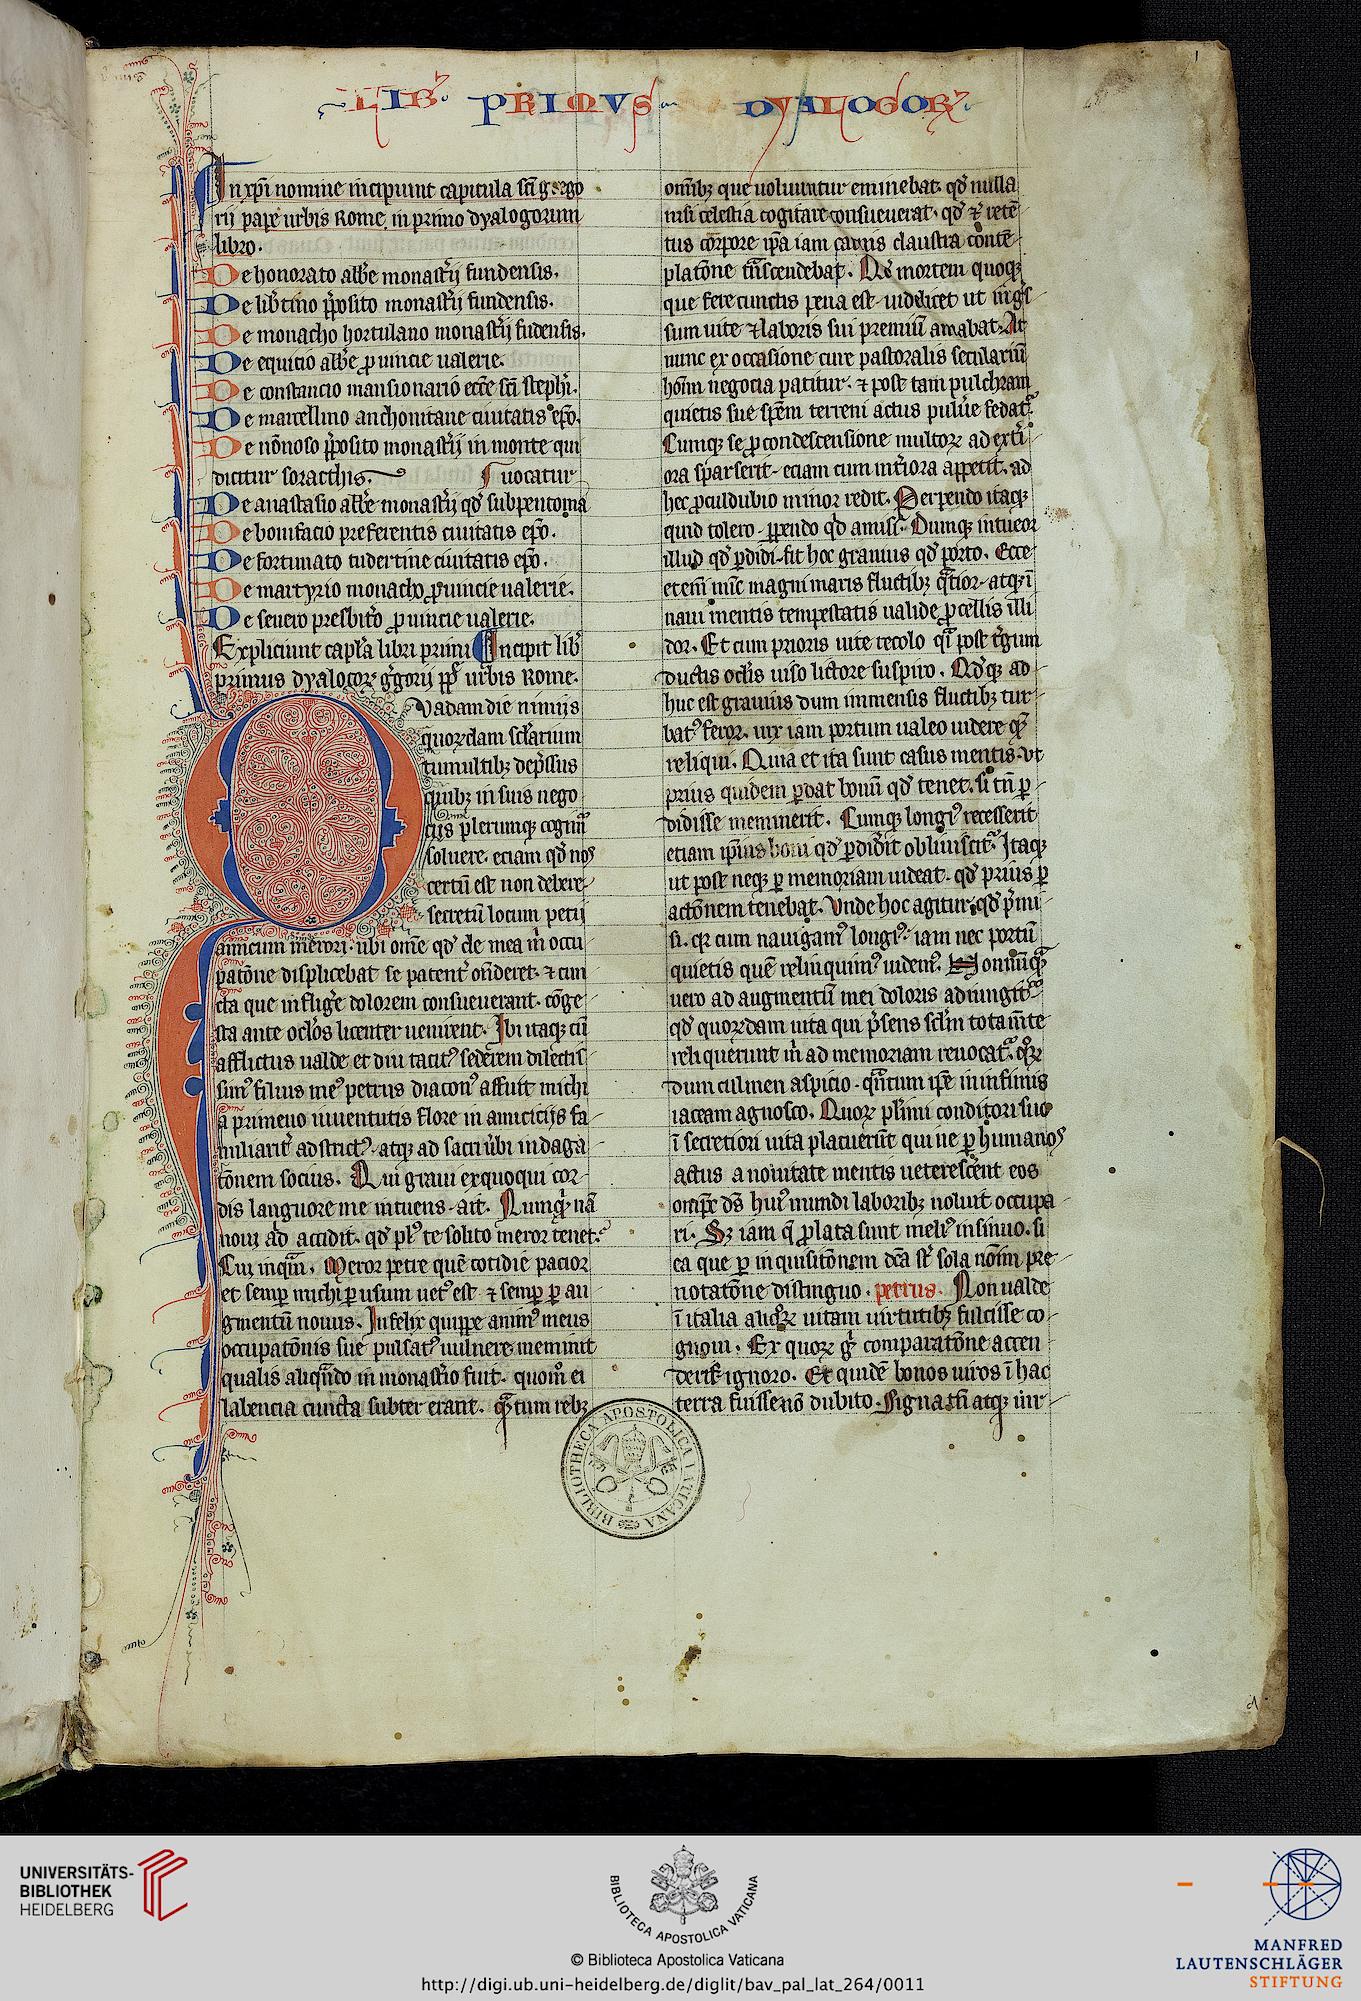 LIB' PRIMVS DYALOGOR
In xp̄i nomine incipiunt capitula sc̄i gregorii pape urbis Rome. in primo dyalogorum
libro.
De honorato abb̄e monast'ij fundensis.
De lib'tino p̄posito monast'ij fundensis.
De monacho hortulano monast'ij fūdensis.
De equitio abb̄e ꝓuincie ualerie.
De constancio mansionario ecc̄e sc̄i steph'i.
De marcellino anchonitane ciuitatis ep̄o.
De nōnoso p̄posito monast'ij in monte qui
dicitur soracthis. uocatur
De anastasio abb̄e monast'ij qd' subpentoma
De bonifacio preferentis ciuitatis ep̄o.
De fortunato tudertine ciuitatis ep̄o.
De martyrio monacho ꝓuincie ualerie.
De seuero presbit'o ꝓuincie ualerie.
Expliciunt capl'a libri primi Incipit lib'
primus dyalogoꝝ g'gorij pp̄ urbis Rome.
Quadam die nimijs
quorꝫdam sc'larium
tumultibꝫ dep̄ssus
quibꝫ in suis nego
cijs plerumqꝫ cogim̄
soluere. eciam qd' nos
certū est non debere
secretū locum petij
amicum merori. ubi om̄e qd' de mea m̄ occu
patōne displicebat se patent' ōnderet. ⁊ cun
cta que inflig'e dolorem consueuerant. cōge
sta ante oc'los licenter uenirent. Ibi itaqꝫ cū
afflictus ualde et diu tacit' sederem dilectis
sim' filius me' petrus diacon' affuit michi
a primeuo iuuentutis flore in amicicijs fa
miliarit' adstrict'. atqꝫ ad sacri u'bi indaga
tōnem socius. Qui graui exquoqui cor
dis languore me intuens. ait. Numq'd nā
noui ad accidit. qd' pl' te solito meror tenet.
Cui inquā. Meror petre quē cotidie pacior
et semꝑ michi ꝑ usum uet' est ⁊ semꝑ ꝑ au
gmentū nouus. Infelix quippe anim' meus
occupatōnis sue pulsat' uulnere meminit
qualis aliqn̄do in monast'io fuit. quom̄o ei
labencia cuncta subter erant. q̄ntum rebꝫ
omībꝫ que uoluuntur eminebat. qd' nulla
nisi celestia cogitare consueuerat. qd' ⁊ reten
tus corpore ip̄a iam carnis claustra contē
platōne trāscendebat. Qd' mortem quoqꝫ
que fere cunctis pena est. uidelicet ut ing's
sum uite ⁊ laboris sui premiū amabat. At
nunc ex occasione cure pastoralis seculariū
hoīm negocia patitur. ⁊ post tam pulchram
quietis sue sp̄em terreni actus pulu'e fedat'.
Cumqꝫ se ꝓ condescensione multoꝝ ad ext'i
ora sparserit. eciam cum int'iora appetit. ad
hec ꝓculdubio minor redit. Perpendo itaqꝫ
quid tolero. ꝑpendo qd' amisi. Dumqꝫ intueor
illud qd' ꝑdidi. fit hoc grauius qd' porto. Ecce
etem̄ nūc magni maris fluctibꝫ q̄tior. atqꝫ ī
naui mentis tempestatis ualide ꝓcellis illi
dor. Et cum prioris uite recolo q̄i post t'gum
ductis oc'lis uiso littore suspiro. Qd'qꝫ ad
huc est grauius dum inmensis fluctibꝫ tur
bat' feror. uix iam portum ualeo uidere quē
reliqui. Quia et ita sunt casus mentis. ut
prius quidem ꝑdat bonū qd' tenet. si tn̄ ꝑ
didisse meminerit. Cumqꝫ long' recesserit
etiam ip̄ius boni qd' ꝑdid'it obliuiscit'. Itaqꝫ
ut post neqꝫ ꝑ memoriam uideat. qd' prius ꝑ
actōnem tenebat. Vnde hoc agitur qd' p̄mi
si. qr cum nauigam' long'. iam nec portū
quietis quē relinquim' uidem'. Nonnūq̄
uero ad augmentū mei doloris adiungit'
qd' quorꝫdam uita qui p̄sens sc'lm tota m̄te
reliquerunt m̄ ad memoriam reuocat'. quoꝝ
dum culmen aspicio. qn̄tum ip̄e in infimis
iaceam agnosco. Quoꝝ pl'imi conditori suo
ī secretiori uita placuer̄t qui ne ꝑ humanos
actus a nouitate mentis ueteresc'ent eos
omp̄s ds̄ hui' mundi laboribꝫ noluit occupa
ri. Sꝫ iam q̄ ꝓlata sunt meli' insinuo. si
ea que ꝑ inquisitōnem dc̄a st̄ sola noīm pre
notatōne distinguo. petrus. Non ualde
ī italia aliquoꝝ uitam uirtutibꝫ fulsisse co
gnoui. Ex quoꝝ g' comparatōne accen
deris ignoro. Et quidē bonos uiros ī hac
terra fuisse nō dubito. Signa tn̄ atqꝫ uir
BIBLIOTHECA APOSTOLICA VATICANA
UNIVERSITÄTS-
BIBLIOTHEK
HEIDELBERG
BIBLIOTECA APOSTOLICA VATICANA
© Biblioteca Apostolica Vaticana
http://digi.ub.uni-heidelberg.de/diglit/bav_pal_lat_264/0011
MANFRED
LAUTENSCHLÄGER
STIFTUNG